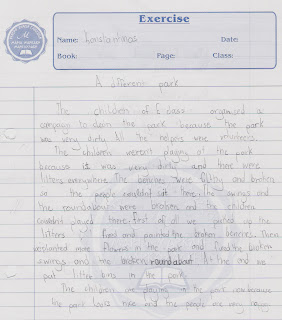 Exercise
Name: Konstantinos Date:
Book: Page: Class:
A different park
The children of E class organised a
campaign to clean the park because the park
was very dirty. All the helpers were volunteers.
The children weren't playing at the park
because it was very dirty and there were
litters everywhere. The benches were filthy and broken
so the people couldn't sit there. The swings and
the roundabout were broken and the children
couldn't played there. First of all we picked up the
litters fixed and painted the broken benches. Then
we planted more flowers in the park and fixed the broken
swings and the broken roundabout. At the end we
put litter bins in the park.
The children are playing in the park now because
the park looks nice and the people are very happy